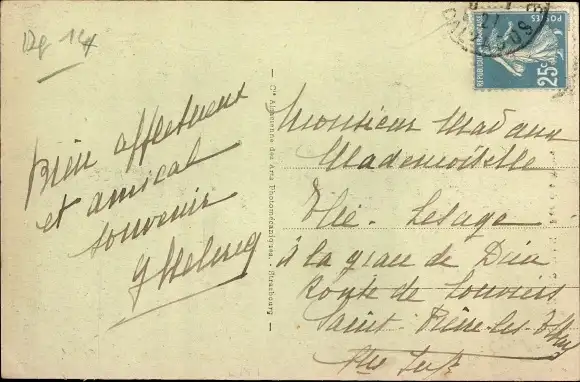 Bien affectueux
et amical
souvenir
Cie Alsacienne des Arts Photomécaniques. - Strasbourg
REPUBLIQUE FRANCAISE
POSTES
25c
Monsieur Madame
Mademoiselle
Elie - Lesage
à la grace de Dieu
Route de Louviers
Saint-Pierre-les-